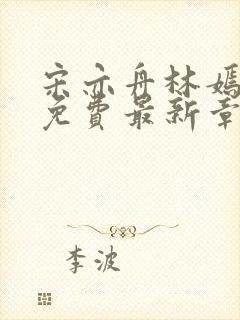 宋亦舟林嫣
免费最新章
李波